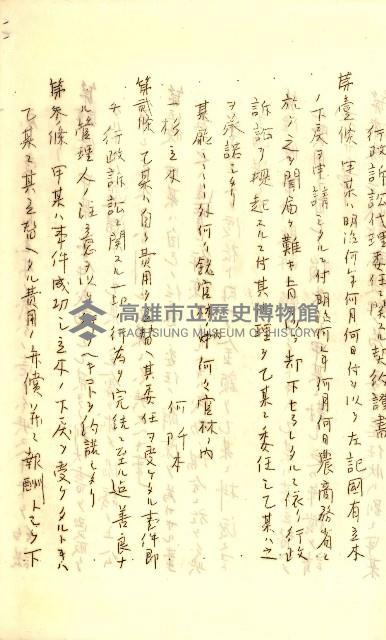 行政訴訟代理委任ニ関スル契約證書
第壹條 甲某ハ明治何年何月何日付ヲ以テ左記國有立木
ノ下戻申請シタルニ付明治何年何月何日農商務省ニ
於テ之ヲ聞届ケ難キ旨 却下セラレタルニ依リ行政
訴訟ヲ提起スルニ付其代理ヲ乙某ニ委任シ乙某ハ之
ヲ承諾セリ
某縣 外何ヶ 官林 何々官林ノ内
一 杉立木 何阡本
第貳條 乙某ハ自ラ費用ヲ立替ヘ其委任ヲ受ケタル事件即
チ行政訴訟ニ関スル一切ノ行為ヲ完結ニ至ル迄善良ナ
ル管理人ノ注意ヲ以テ ヘキコトヲ約諾セリ
第参條 甲某ハ事件成功シ立木ノ下戻ヲ受ケタルトキハ
乙某ニ其立替ヘタル費用ノ弁償并ニ報酬トシテ下
高雄市立歷史博物館
KAOHSIUNG MUSEUM OF HISTORY